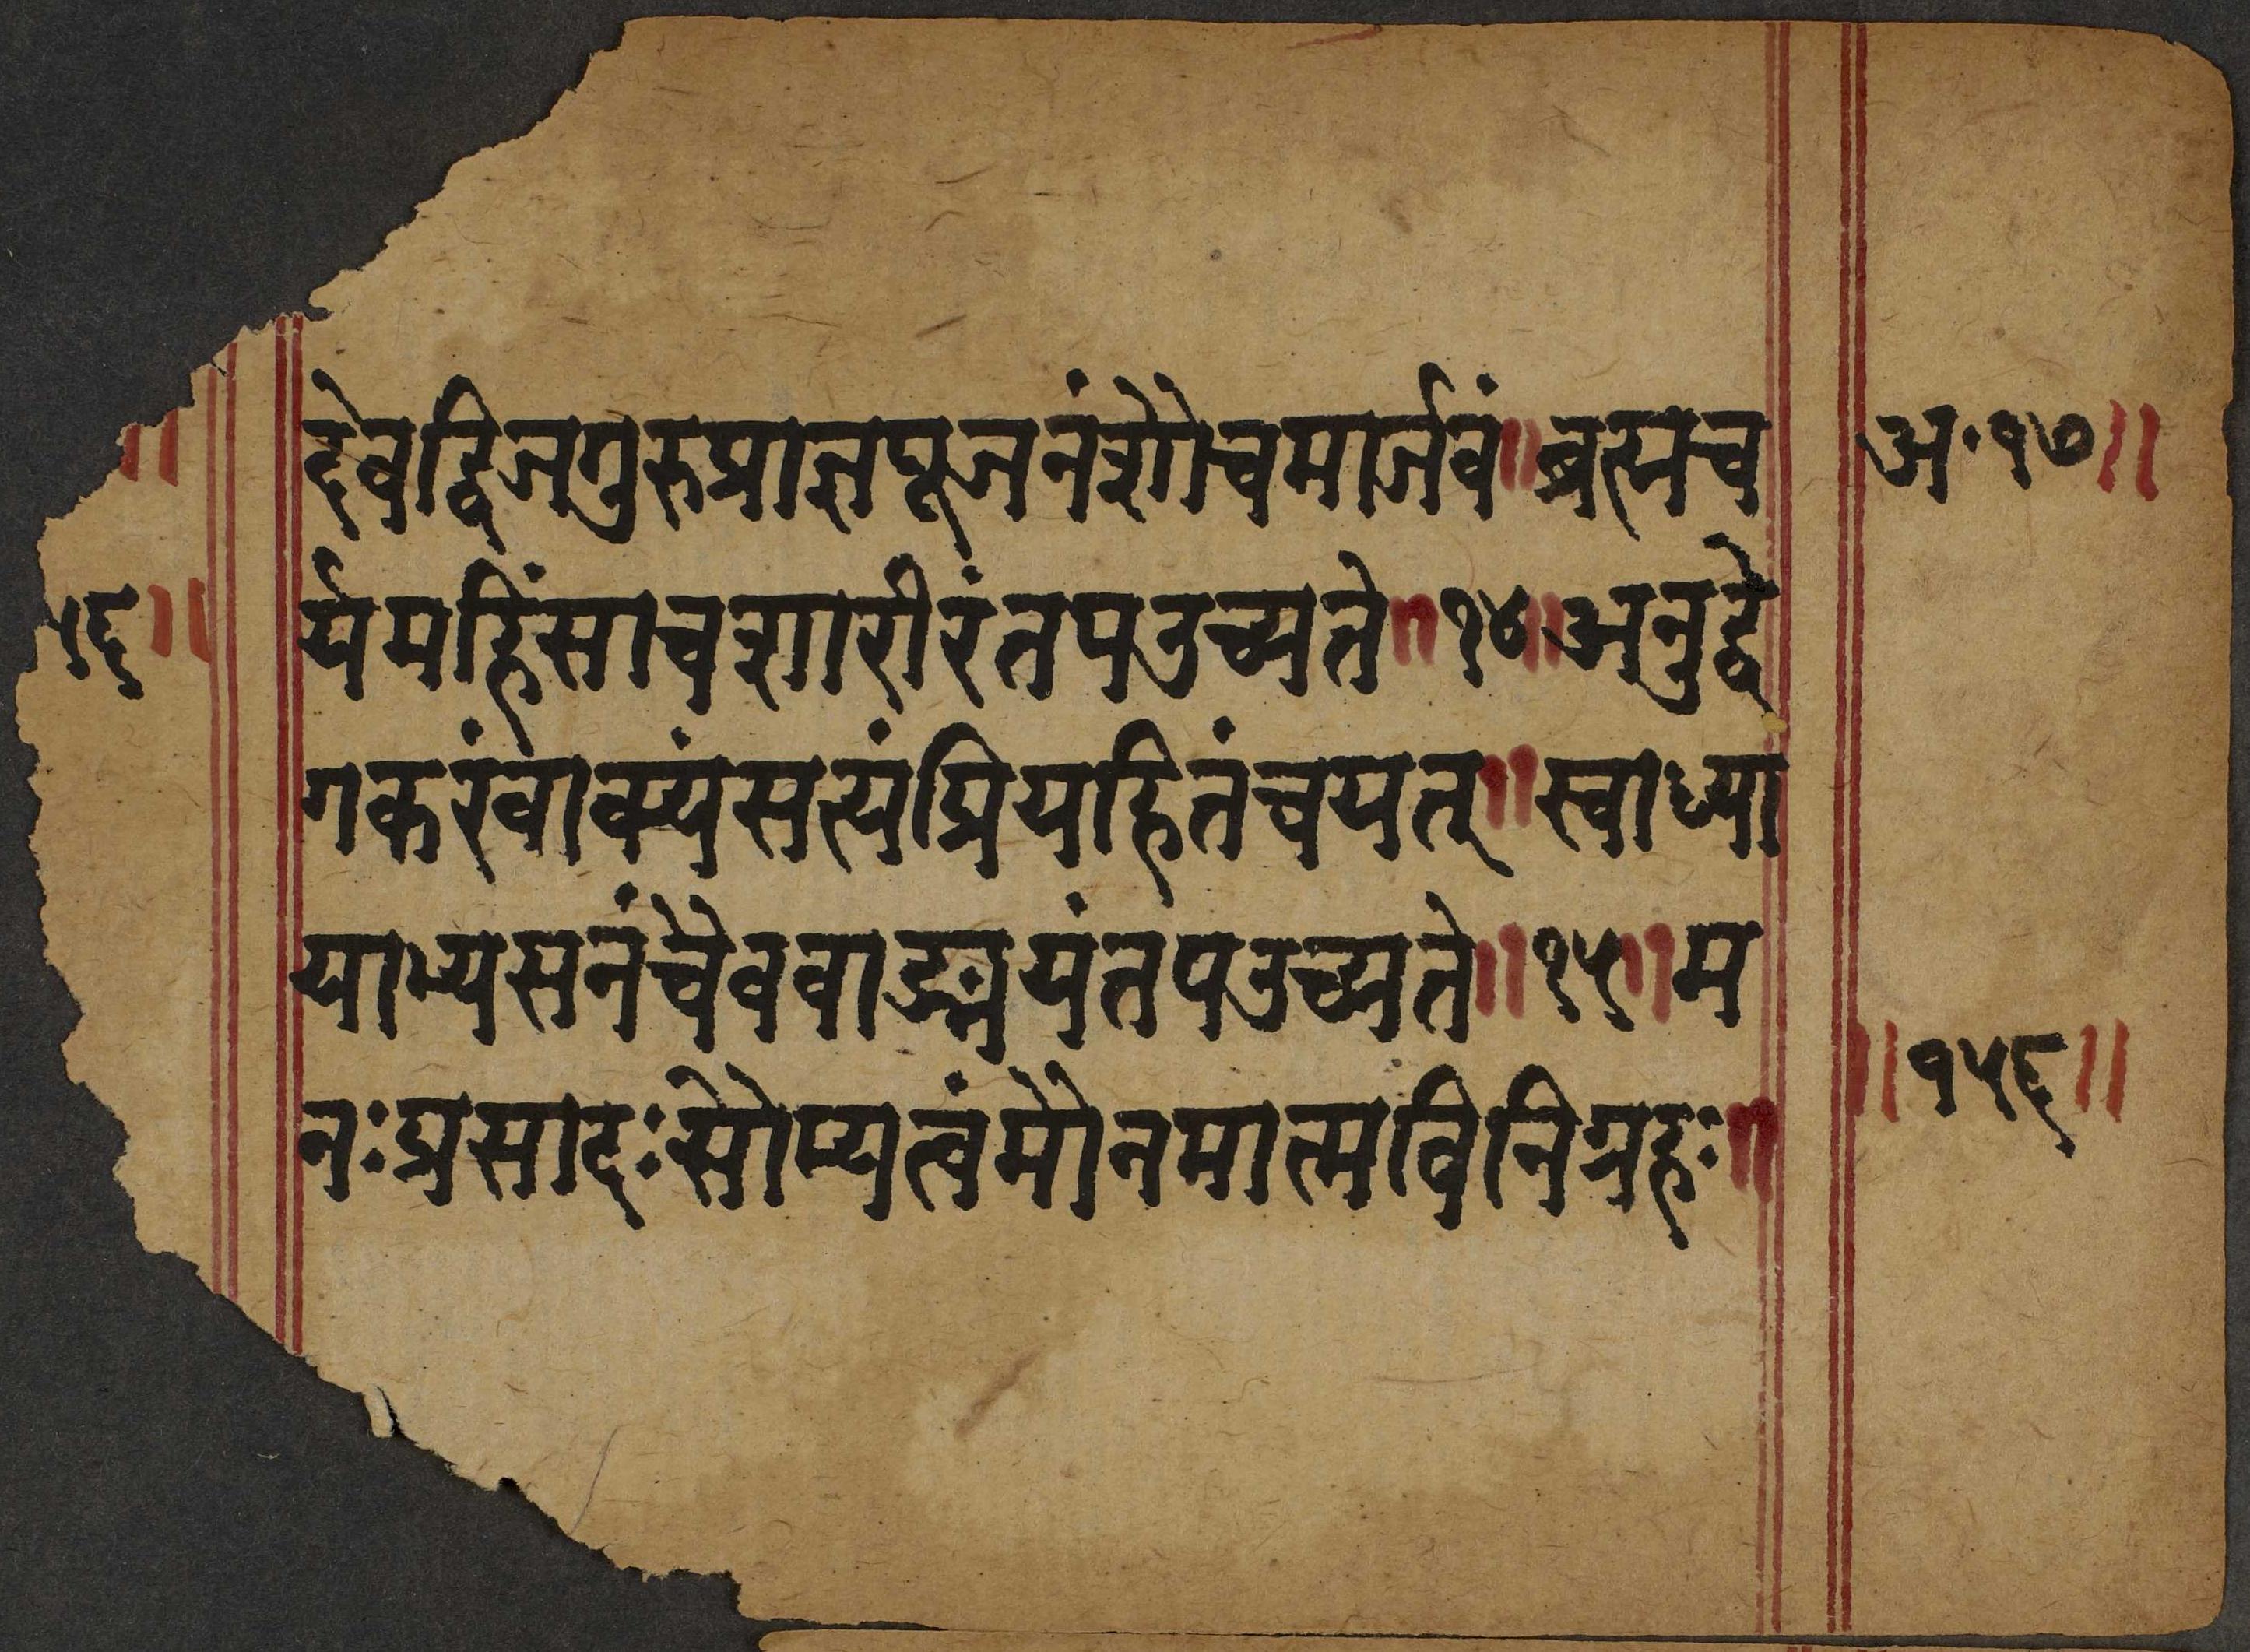 देवद्विजगुरुप्राज्ञपूजनंशौचमार्जवं॥ब्रह्मच
र्यमहिंसाचशारीरंतपउच्यते॥१४॥अनुद्वे
गकरंवाक्यंसत्यंप्रियहितंचयत्॥स्वाध्या
याभ्यसनंचैववाङ्मयंतपउच्यते॥१५॥म
नःप्रसादःसौम्यत्वंमौनमात्मविनिग्रहः॥
अ॰१७॥
॥१५६॥
५६॥